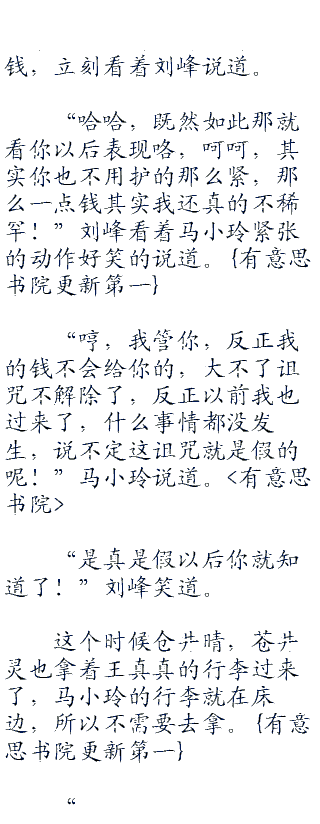 钱，立刻看着刘峰说道。
“哈哈，既然如此那就
看你以后表现咯，呵呵，其
实你也不用护的那么紧，那
么一点钱其实我还真的不稀
罕！”刘峰看着马小玲紧张
的动作好笑的说道。{有意思
书院更新第一}
“哼，我管你，反正我
的钱不会给你的，大不了诅
咒不解除了，反正以前我也
过来了，什么事情都没发
生，说不定这诅咒就是假的
呢！”马小玲说道。<有意思
书院>
“是真是假以后你就知
道了！”刘峰笑道。
这个时候仓井晴，苍井
灵也拿着王真真的行李过来
了，马小玲的行李就在床
边，所以不需要去拿。{有意
思书院更新第一}
“